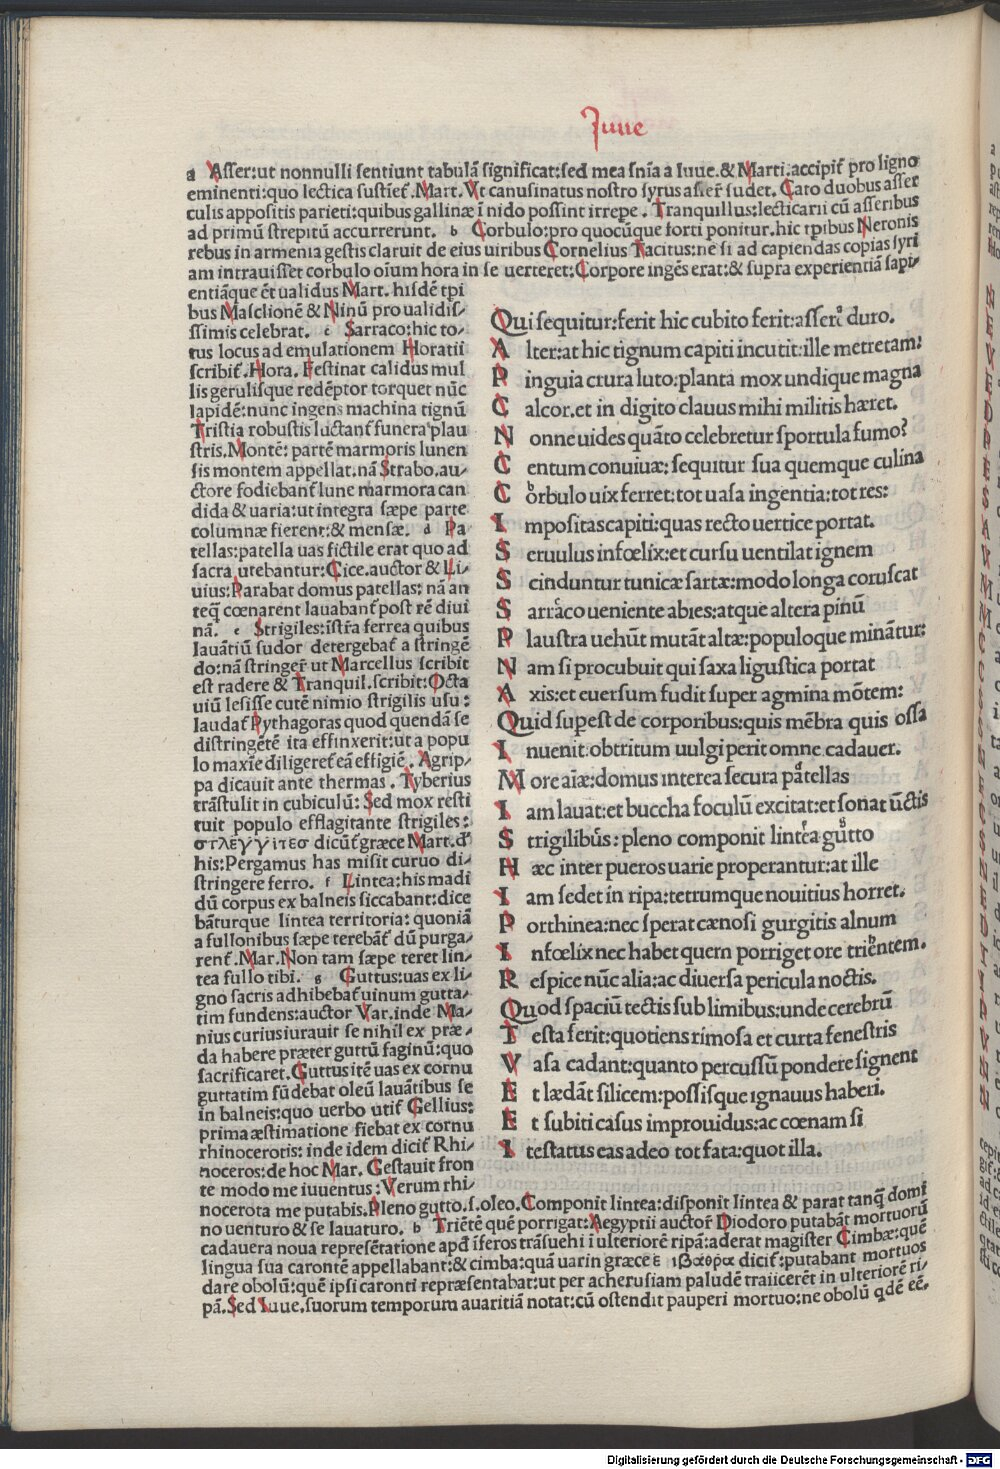 Iuue
a Aſſer:ut nonnulli ſentiunt tabulã ſignificat:ſed mea ſnĩa a Iuue.& Marti.accipit̃ pro ligno
eminenti:quo lectica ſuſtiet̃.Mart.Vt canuſinatus noſtro ſyrus aſſer̃ ſudet.Cato duobus aſſer
culis appoſitis parieti:quibus gallinæ ĩ nido poſſint irrepe.Tranquillus:lecticarii cũ aſſeribus
ad primũ ſtrepitũ accurrerunt. b Corbulo:pro quocũque forti ponitur.hic tpibus Neronis
rebus in armenia geſtis claruit de eius uiribus Cornelius Tacitus:ne ſi ad capiendas copias ſyri
am intrauiſſet corbulo oĩum hora in ſe uerteret:Corpore ingẽs erat:& ſupra experientiã ſapi-
entiãque ẽt ualidus Mart. hiſdẽ tpi
bus Maſclionẽ & Ninũ pro ualidiſ-
ſſimis celebrat. c Sarraco:hic to-
tus locus ad emulationem Horatii
ſcribit̃.Hora.Feſtinat calidus mul
lis geruliſque redẽptor torquet nũc
lapidẽ:nunc ingens machina tignũ
Triſtia robuſtis luctant̃ funera plau
ſtris.Montẽ: partẽ marmoris lunen
ſis montem appellat.nã Strabo.au-
ctore fodiebant̃ lune marmora can
dida & uaria:ut integra ſæpe parte
columnæ fierent:& menſæ. d Pa
tellas:patella uas fictile erat quo ad
ſacra utebantur:Cice.auctor & Li-
uius:Parabat domus patellas: nã an
teq̃ cœnarent lauabant̃ poſt rẽ diui
nã. e Strigiles:iſtr̃a ferrea quibus
lauãtiũ ſudor detergebat̃ a ſtringẽ
do:nã ſtringer̃ ut Marcellus ſcribit
eſt radere & Tranquil.ſcribit:Octa
uiũ leſiſſe cutẽ nimio ſtrigilis uſu:
laudat̃ Pythagoras quod quendã ſe
diſtringẽtẽ ita effinxerit:ut a popu
lo maxĩe diligeret̃ eã effigiẽ.Agrip-
pa dicauit ante thermas.Tyberius
trãſtulit in cubiculũ:Sed mox reſti
tuit populo efflagitante ſtrigiles:
στλεγγιτεσ dicũt̃ græce Mart.d̃
his:Pergamus has miſit curuo di-
ſtringere ferro. f Lintea:his madi
dũ corpus ex balneis ſiccabant:dice
bãturque lintea territoria: quoniã
a fullonibus ſæpe terebãt̃ dũ purga-
rent̃.Mar.Non tam ſæpe teret lin-
tea fullo tibi. g Guttus:uas ex li-
gno ſacris adhibebat̃ uinum gutta-
tim fundens:auctor Var.inde Ma-
nius curius iurauit ſe nihil ex præ-
da habere præter guttũ faginũ:quo
ſacrificaret.Guttus itẽ uas ex cornu
guttatim fũdebat oleũ lauãtibus ſe
in balneis:quo uerbo utit̃ Gellius:
prima æſtimatione fiebat ex cornu
rhinocerotis: inde idem dicit̃ Rhi-
noceros:de hoc Mar.Geſtauit fron
te modo me iuuentus:Verum rhi-
nocerota me putabis.Pleno gutto.ſ.oleo.Componit lintea:diſponit lintea & parat tanq̃ domi
no uenturo & ſe lauaturo. h Triẽtẽ quẽ porrigat:Aegyptii auctor̃ Diodoro putabãt mortuorũ
cadauera noua repreſẽtatione apđ ĩferos trãſuehi ĩ ulteriorẽ ripã:aderat magiſter Cimbæ:quẽ
lingua ſua carontẽ appellabant:& cimba:quã uarin græce ε ιβαορα dicit̃:putabant mortuos
dare obolũ:quẽ ipſi caronti repræſentabat:ut per acheruſiam paludẽ traiicerẽt in ulteriorẽ ri-
pã.Sed Iuue.ſuorum temporum auaritiã notat:cũ oſtendit pauperi mortuo:ne obolũ qđẽ eẽ.
Qui ſequitur:ferit hic cubito ferit:aſſer͛ duro.
A lter:at hic tignum capiti incutit:ille metretam:
P inguia crura luto:planta mox undique magna
C alcor.et in digito clauus mihi militis hæret.
N onne uides quãto celebretur ſportula fumo?
C entum conuiuæ: ſequitur ſua quemque culina
C orbulo uix ferret:tot uaſa ingentia:tot res:
I mpoſitas capiti:quas recto uertice portat.
S eruulus infœlix:et curſu uentilat ignem
S cinduntur tunicæ ſartæ:modo longa coruſcat
S arraco ueniente abies:atque altera pinũ
P lauſtra uehũt mutãt altæ:populoque minãtur:
N am ſi procubuit qui ſaxa liguſtica portat
A xis:et euerſum fudit ſuper agmina mõtem:
Quid ſupeſt de corporibus:quis mẽbra quis oſſa
I nuenit:obtritum uulgi perit omne cadauer.
M ore aĩæ:domus interea ſecura patellas
I am lauat:et buccha foculũ excitat:et ſonat ũctis
S trigilibus: pleno componit lintea gutto
H æc inter pueros uarie properantur:at ille
I am ſedet in ripa:tetrumque nouitius horret.
P orthinea:nec ſperat cænoſi gurgitis alnum
I nfœlix nec habet quem porriget ore trientem.
R eſpice nũc alia:ac diuerſa pericula noctis.
Quod ſpaciũ tectis ſublimibus:unde cerebrũ
T eſta ferit:quotiens rimoſa et curta feneſtris
V aſa cadant:quanto percuſſũ pondere ſignent
E t lædãt ſilicem:poſſiſque ignauus haberi.
E t ſubiti caſus improuidus:ac cœnam ſi
I teſtatus eas adeo tot fata:quot illa.
Digitalisierung gefördert durch die Deutsche Forschungsgemeinschaft - DFG